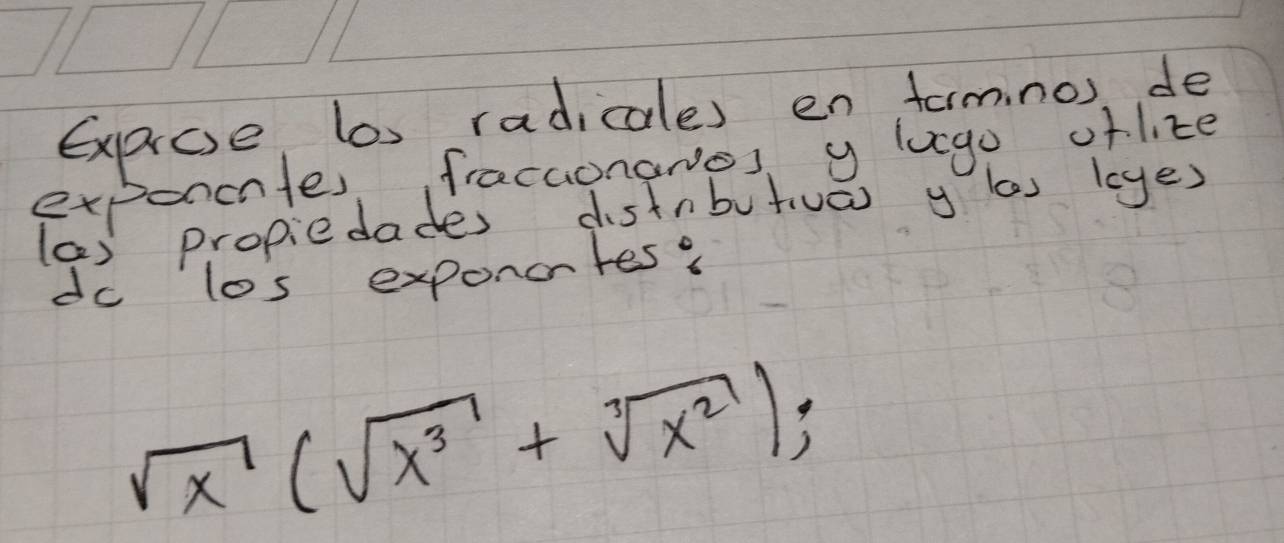 Exprese los radicales en terminos de
exponentes fraccionarios y luego utilize
las propiedades distributivas y las leyes
de los exponentes:
√x (√x³ + ∛x²);